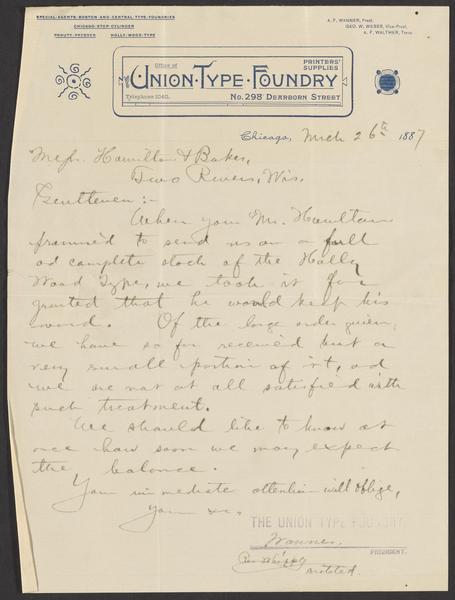 SPECIAL AGENTS BOSTON AND CENTRAL TYPE FOUNDRIES
CHICAGO STOP CYLINDER
PROUTY PRESSES HOLLY WOOD TYPE
A. F. WANNER, Prest.
GEO. W. WEBER, Vice-Prest.
A. F. WALTHER, Treas.
Office of
PRINTERS' SUPPLIES
UNION TYPE FOUNDRY
Telephone 1040.
No. 298 DEARBORN STREET
Chicago, Mch 26th 1887
Messrs. Hamilton & Baker,
Two Rivers, Wis.
Gentlemen:-
When your Mr. Hamilton
promised to send us on a full
ad complete stock of the Holly
Wood Type, we took it for
granted that he would keep his
word. Of the large order given,
we have so far received but a
very small portion of it, ad
we are not at all satisfied with
such treatment.
We should like to know at
once how soon we may expect
the balance.
Your immediate attention will oblige,
Your &c.
THE UNION TYPE FOUNDRY
Wanner
PRESIDENT.
Dictated.